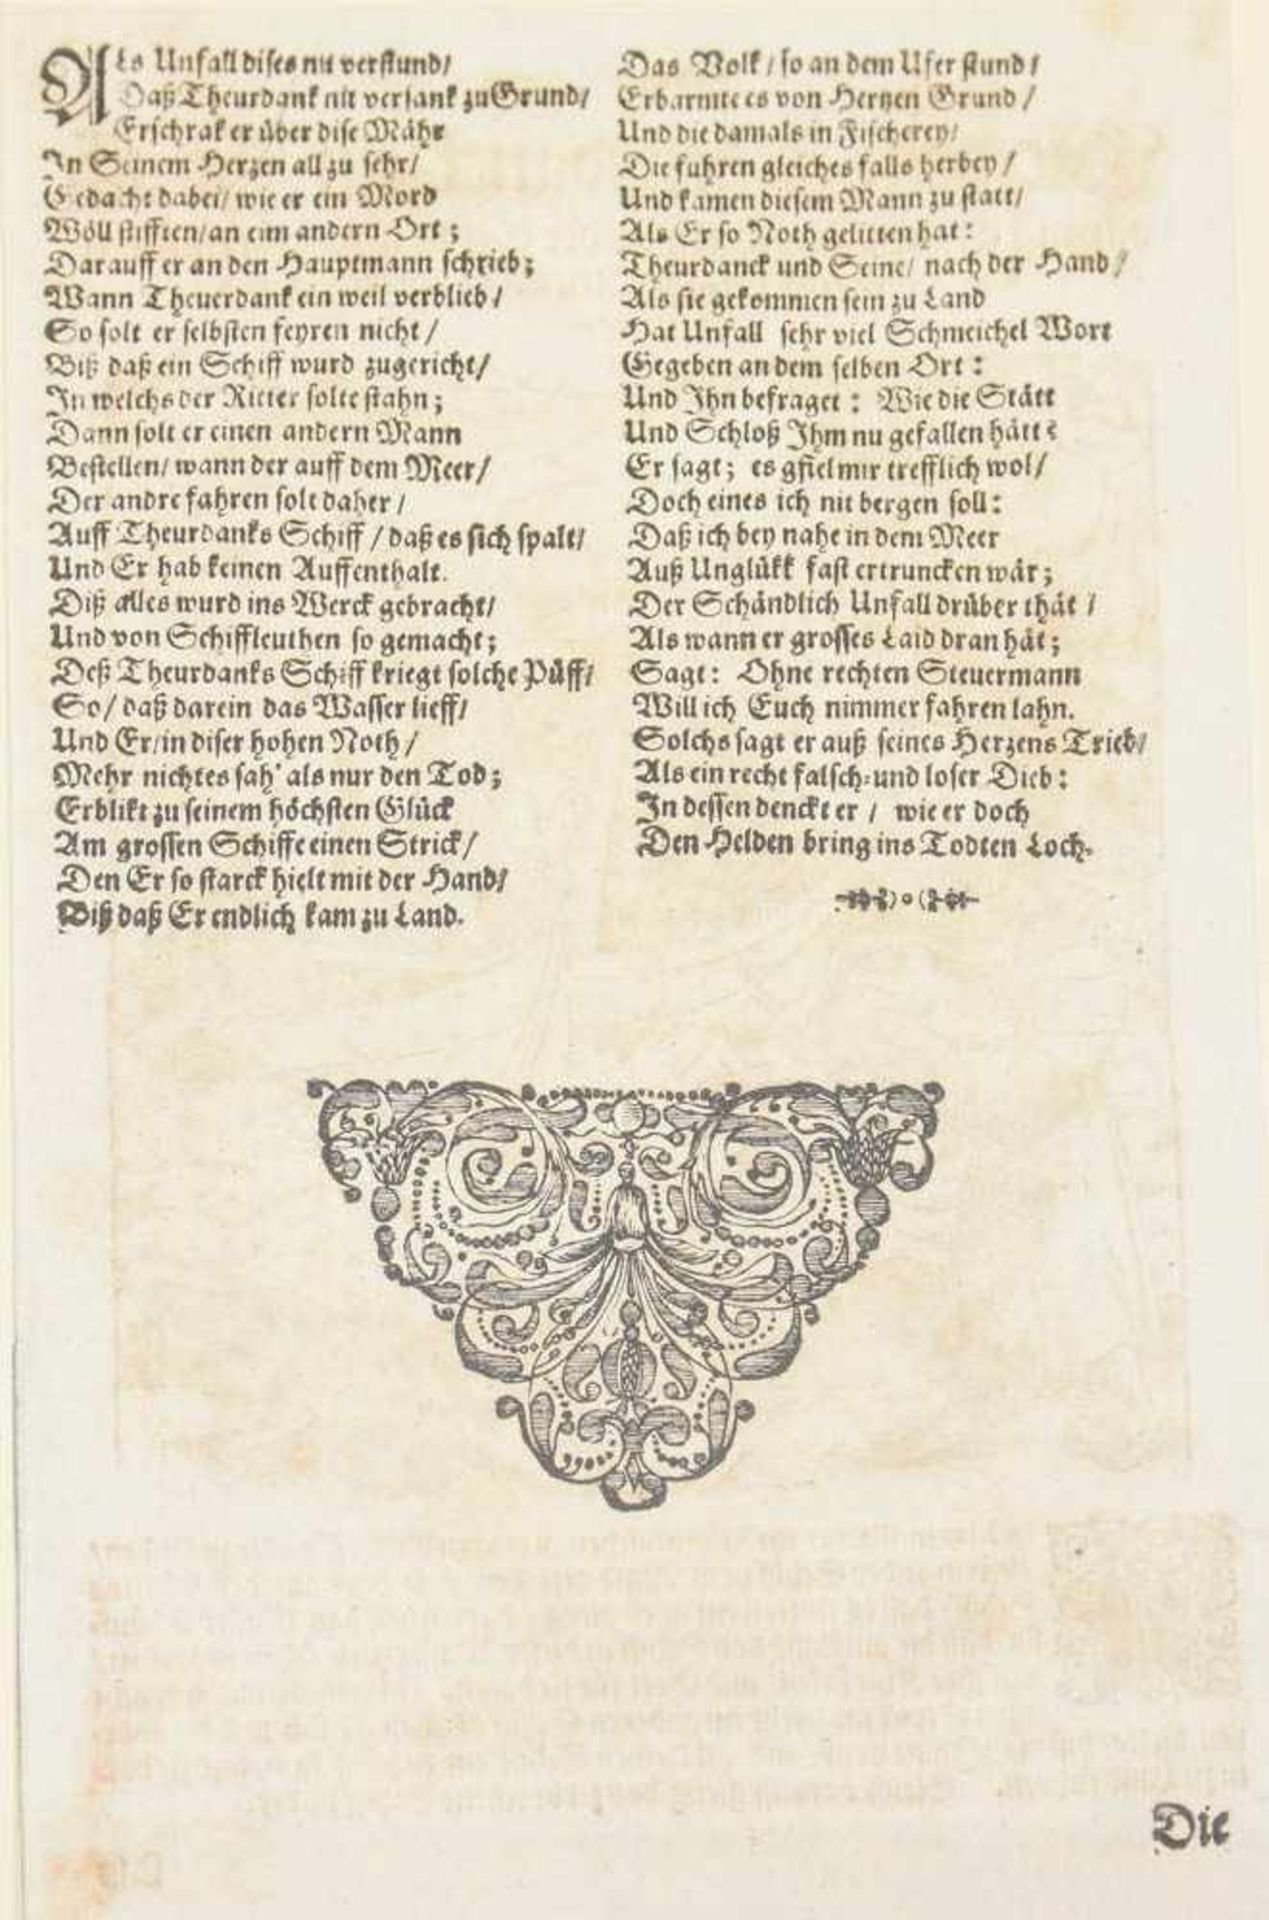 Als Unfall dises nu verstund/
Daß Theurdank nit versank zu Grund/
Erschrak er über dise Mähr
In Seinem Herzen all zu sehr/
Gedacht dabei/ wie er ein Mord
Wöll stifften/ an eim andern Ort;
Darauff er an den Hauptmann schrieb;
Wann Theuerdank ein weil verblieb/
So solt er selbsten feyren nicht/
Biß daß ein Schiff wurd zugericht/
In welchs der Ritter solte stahn;
Dann solt er einen andern Mann
Bestellen/ wann der auff dem Meer/
Der andre fahren solt daher/
Auff Theurdanks Schiff/ daß es sich spalt/
Und Er hab keinen Auffenthalt.
Diß alles wurd ins Werck gebracht/
Und von Schiffleuthen so gemacht;
Deß Theurdanks Schiff kriegt solche Püff/
So/ daß darein das Wasser lieff/
Und Er/ in diser hohen Noth/
Mehr nichtes sah' als nur den Tod;
Erblikt zu seinem höchsten Glück
Am grossen Schiffe einen Strick/
Den Er so starck hielt mit der Hand/
Biß daß Er endlich kam zu Land.
Das Volk/ so an dem Ufer stund/
Erbarmte es von Hertzen Grund/
Und die damals in Fischerey/
Die fuhren gleiches falls herbey/
Und kamen diesem Mann zu statt/
Als Er so Noth gelitten hat:
Theurdanck und Seine/ nach der Hand/
Als sie gekommen sein zu Land
Hat Unfall sehr viel Schmeichel Wort
Gegeben an dem selben Ort:
Und Ihn befraget: Wie die Stätt
Und Schloß Ihm nu gefallen hätt?
Er sagt; es gfiel mir trefflich wol/
Doch eines ich nit bergen soll:
Daß ich bey nahe in dem Meer
Auß Unglükk fast ertruncken wär;
Der Schändlich Unfall drüber thät/
Als wann er grosses Laid dran hät;
Sagt: Ohne rechten Steuermann
Will ich Euch nimmer fahren lahn.
Solchs sagt er auß seines Herzens Trieb/
Als ein recht falsch- und loser Dieb:
In dessen denckt er/ wie er doch
Den Helden bring ins Todten Loch.
Die